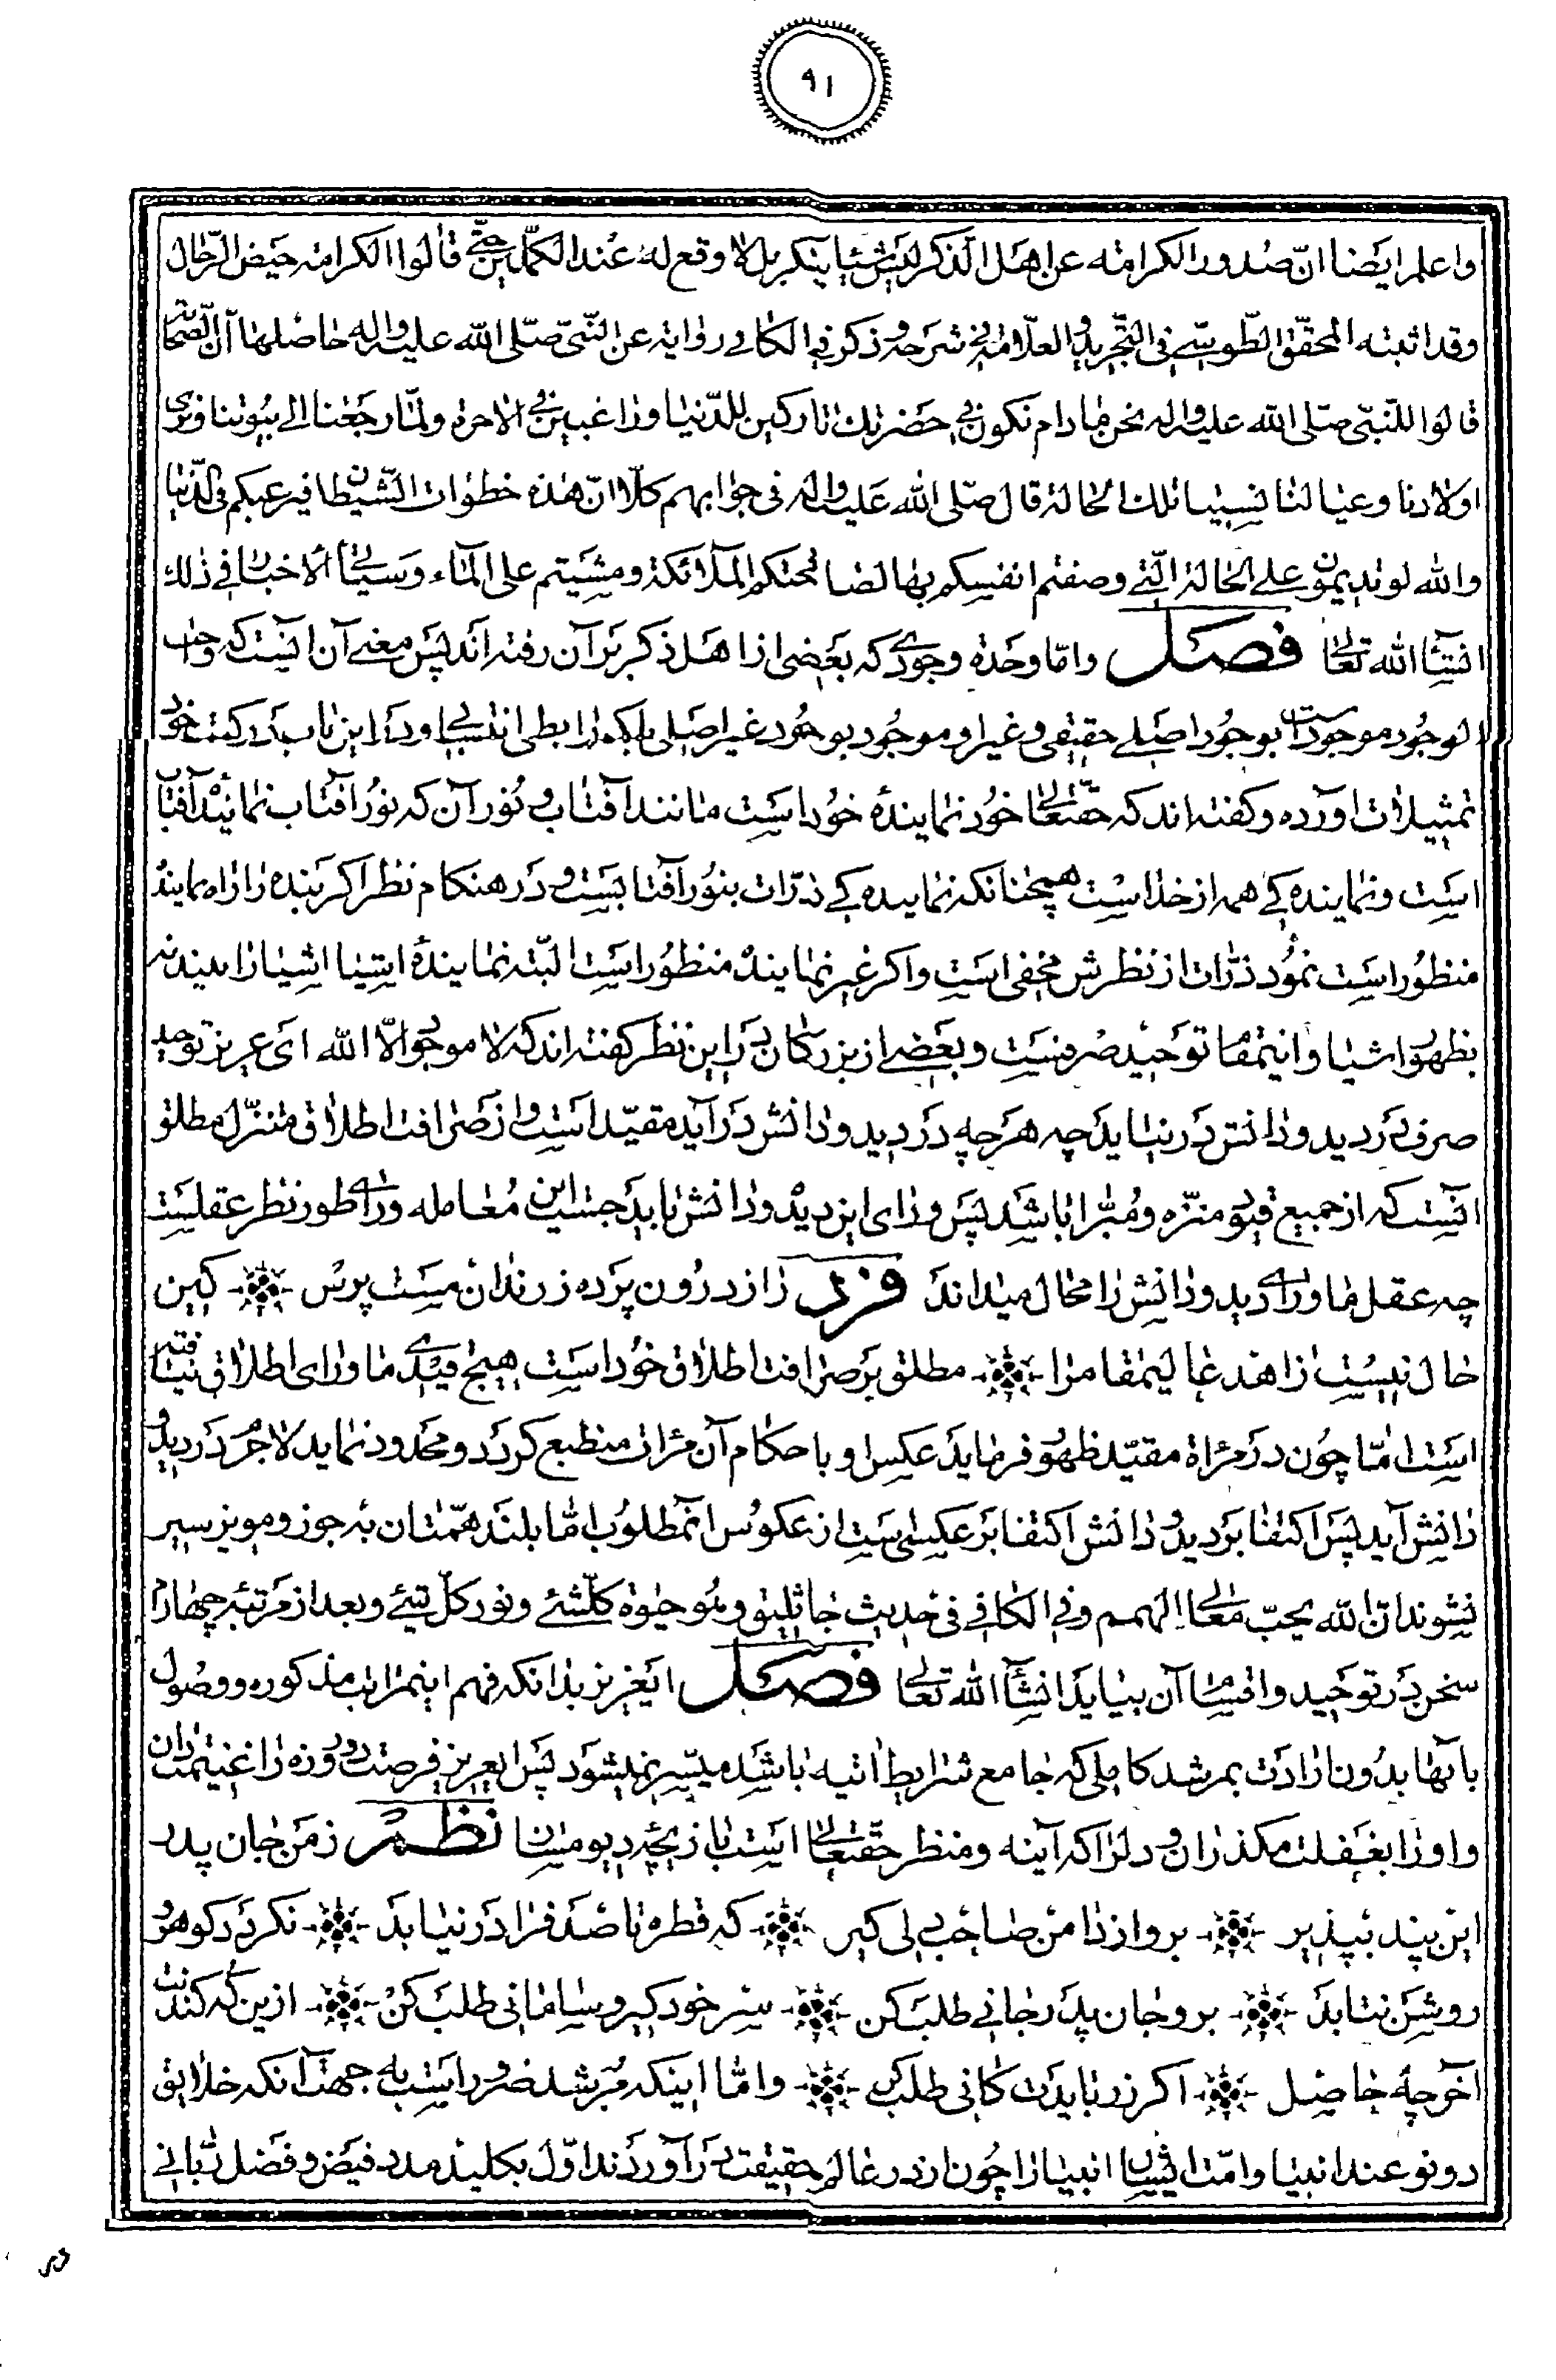 ۹۱
واعلم ایضا ان صدور الکرامة عن اهل الذکر لیس شیئا ینکر بل لا وقع له عند الکملین حتی قالوا الکرامة حیض الرجال
وقد اثبته المحقق الطوسی فی التجرید والعلامة فی شرحه و ذکر فی الکافی روایة عن النبی صلی الله علیه واله حاصلها ان الصحابة
قالوا للنبی صلی الله علیه واله نحن مادام نکون فی حضرتک تارکین للدنیا وراغبین فی الاخرة ولما رجعنا الی بیوتنا ونری
اولادنا وعیالنا نسینا تلک الحالة قال صلی الله علیه واله فی جوابهم کلا ان هذه خطوات الشیطان فیرغبکم فی الدنیا
والله لو تدیمون علی الحالة التی وصفتم انفسکم بها لصافحتکم الملائکة ومشیتم علی الماء وسیاتی الاخبار فی ذلک
انشاء الله تعالی فصل واما وحدة وجودی که بعضی از اهل ذکر بر آن رفته اند پس معنی آن اینست که واجب
الوجود موجود است بوجود اصلی حقیقی وغیر او موجود بوجود غیر اصلی بلکه رابطی انتسابی و در این باب در کتب خود
تمثیلات اورده وکفته اند که حقتعالی خود نمایندهٔ خود است مانند آفتاب و نور آن که نور آفتاب نمایندهٔ آفتاب
است ونماینده کی همه از خداست همچنانکه نماینده کی ذرات بنور آفتابست و در هنکام نظر اکر بنده را راه نماینده
منظور است نمود ذرات از نظرش مخفی است واکر غیر نماینده منظور است البته نمایندهٔ اشیا اشیا را میبیند نه
بظهور اشیا واینمقام توحید صرفست وبعضی از بزرکان در این نظر کفته اند که لا موجود الا الله ای عزیز توحید
صرف در دید ودانش در نیاید چه هر چه در دید ودانش در آید مقید است و از صرافت اطلاق متنزل مطلق
انست که از جمیع قیود منزه ومبرا باشد پس ورای این دید ودانش باید جست این معامله ورای طور نظر عقلیست
چه عقل ماورای دید ودانش را محال میداند فرد راز درون پرده ز رندان مست پرس کین
حال نیست زاهد عالیمقام را مطلق بر صرافت اطلاق خود است هیچ قیدی ماورای اطلاق نیافته
است اما چون در مرآة مقید ظهور فرماید عکس او باحکام آن مرآت منطبع کردد ومحدود نماید لاجرم در دید و
دانش آید پس اکتفا بر دید و دانش اکتفا بر عکسی ست از عکوس انمطلوب اما بلند همتان به جوز ومویز سیر
نشوند ان الله یحب معالی الهمم وفی الکافی فی حدیث جاثلیق وهو حیوة کل شئ ونور کل شئ وبعد از مرتبه چهارم
سخن در توحید واقسام آن بیاید انشاء الله تعالی فصل ایعزیز بدانکه فهم اینمراتب مذکوره ووصول
بآنها بدون ارادت بمرشد کاملی که جامع شرایط اتیه باشد میسر نمیشود پس ایعزیز فرصت دو روزه را غنیمت دان
واو را بغفلت مکذران و دل را که آینه ومنظر حقتعالی است بازیچه دیو مسان نظم ز من جان پدر
این پند بپذیر برو از دامن صاحبدلی کیر که قطره تا صدف را در نیابد نکردد کوهر و
روشن نتابد برو جان پدر جانی طلب کن سر خود کیر و سامانی طلب کن ازین کندنت
آخر چه حاصل اکر زر بایدت کانی طلب کن واما اینکه مرشد ضرور است به جهت آنکه خلایق
دو نوعند انبیا وامت ایشان انبیا را چون از در عالم حقیقت در آوردند اول بکلید مدد فیض وفضل ربانی